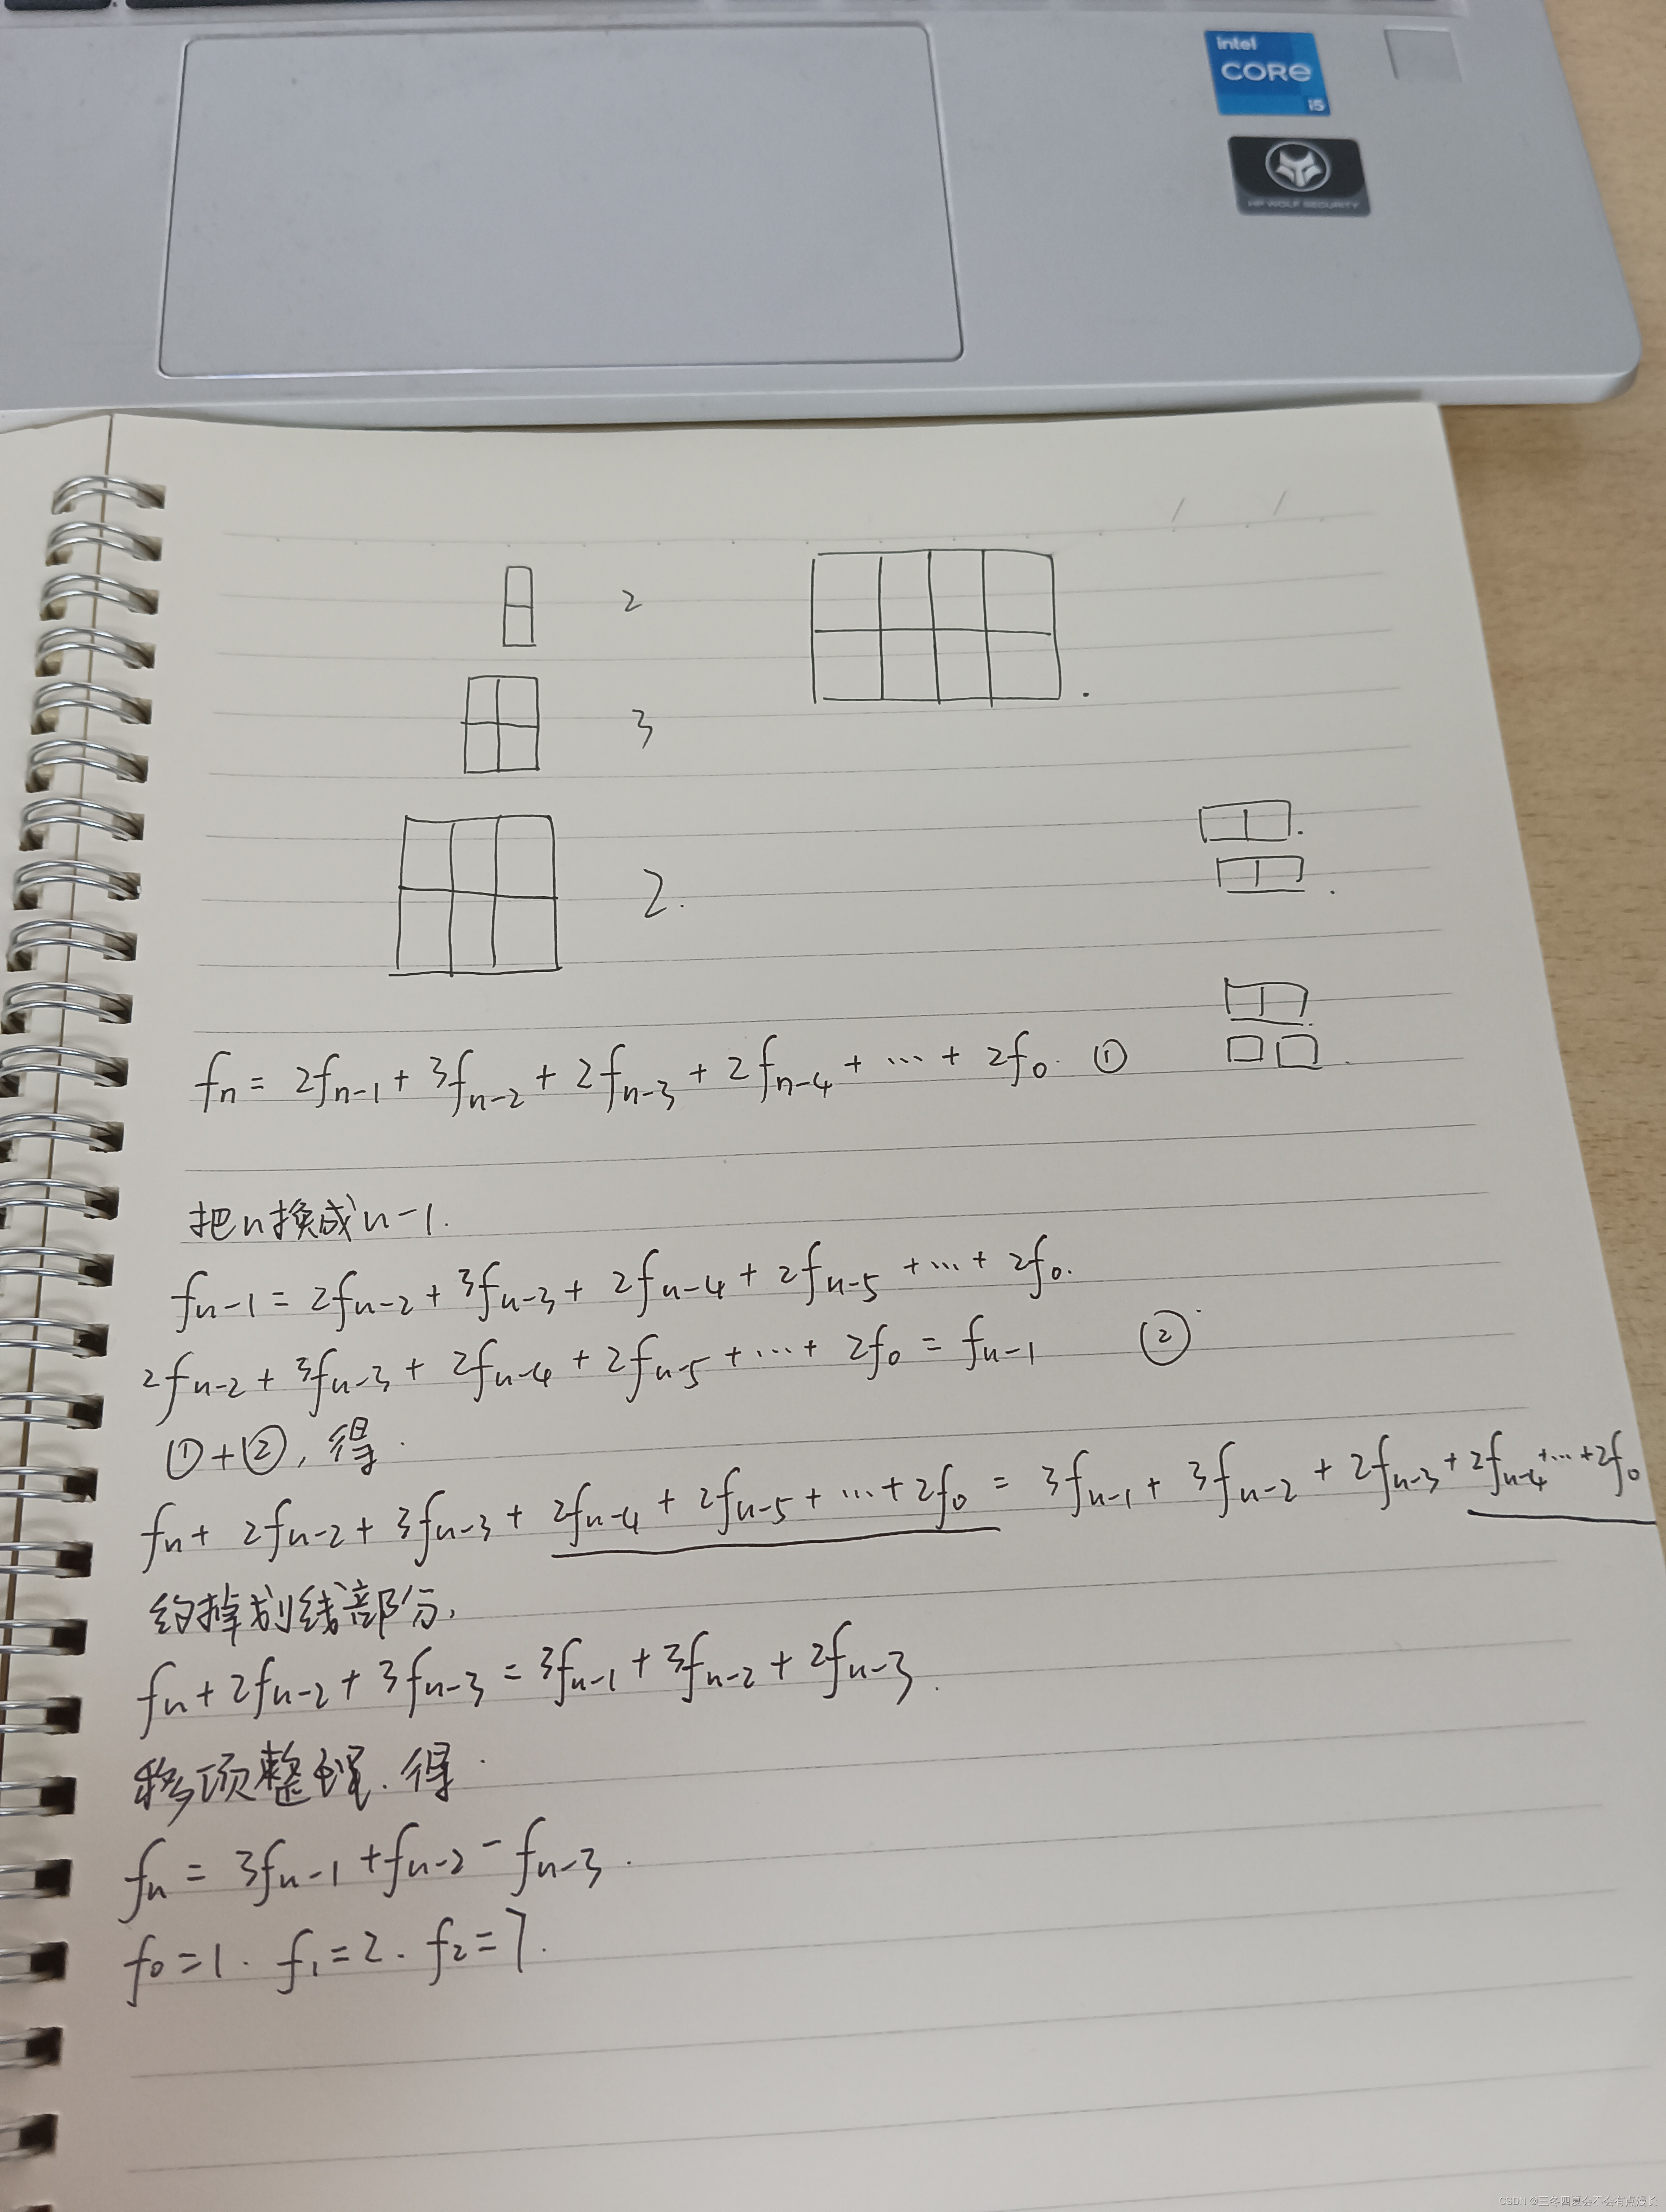 intel
CORE
i5
HP WOLF SECURITY
2
3
2.
fn = 2fn-1 + 3fn-2 + 2fn-3 + 2fn-4 + … + 2f0. ①
把n换成n-1.
fn-1 = 2fn-2 + 3fn-3 + 2fn-4 + 2fn-5 + … + 2f0.
2fn-2 + 3fn-3 + 2fn-4 + 2fn-5 + … + 2f0 = fn-1 ②
①+②, 得.
fn + 2fn-2 + 3fn-3 + 2fn-4 + 2fn-5 + … + 2f0 = 3fn-1 + 3fn-2 + 2fn-3 + 2fn-4 + … + 2f0
约掉划线部分,
fn + 2fn-2 + 3fn-3 = 3fn-1 + 3fn-2 + 2fn-3.
移项整理. 得.
fn = 3fn-1 + fn-2 - fn-3.
f0 = 1. f1 = 2. f2 = 7.
CSDN @三冬四夏会不会有点漫长